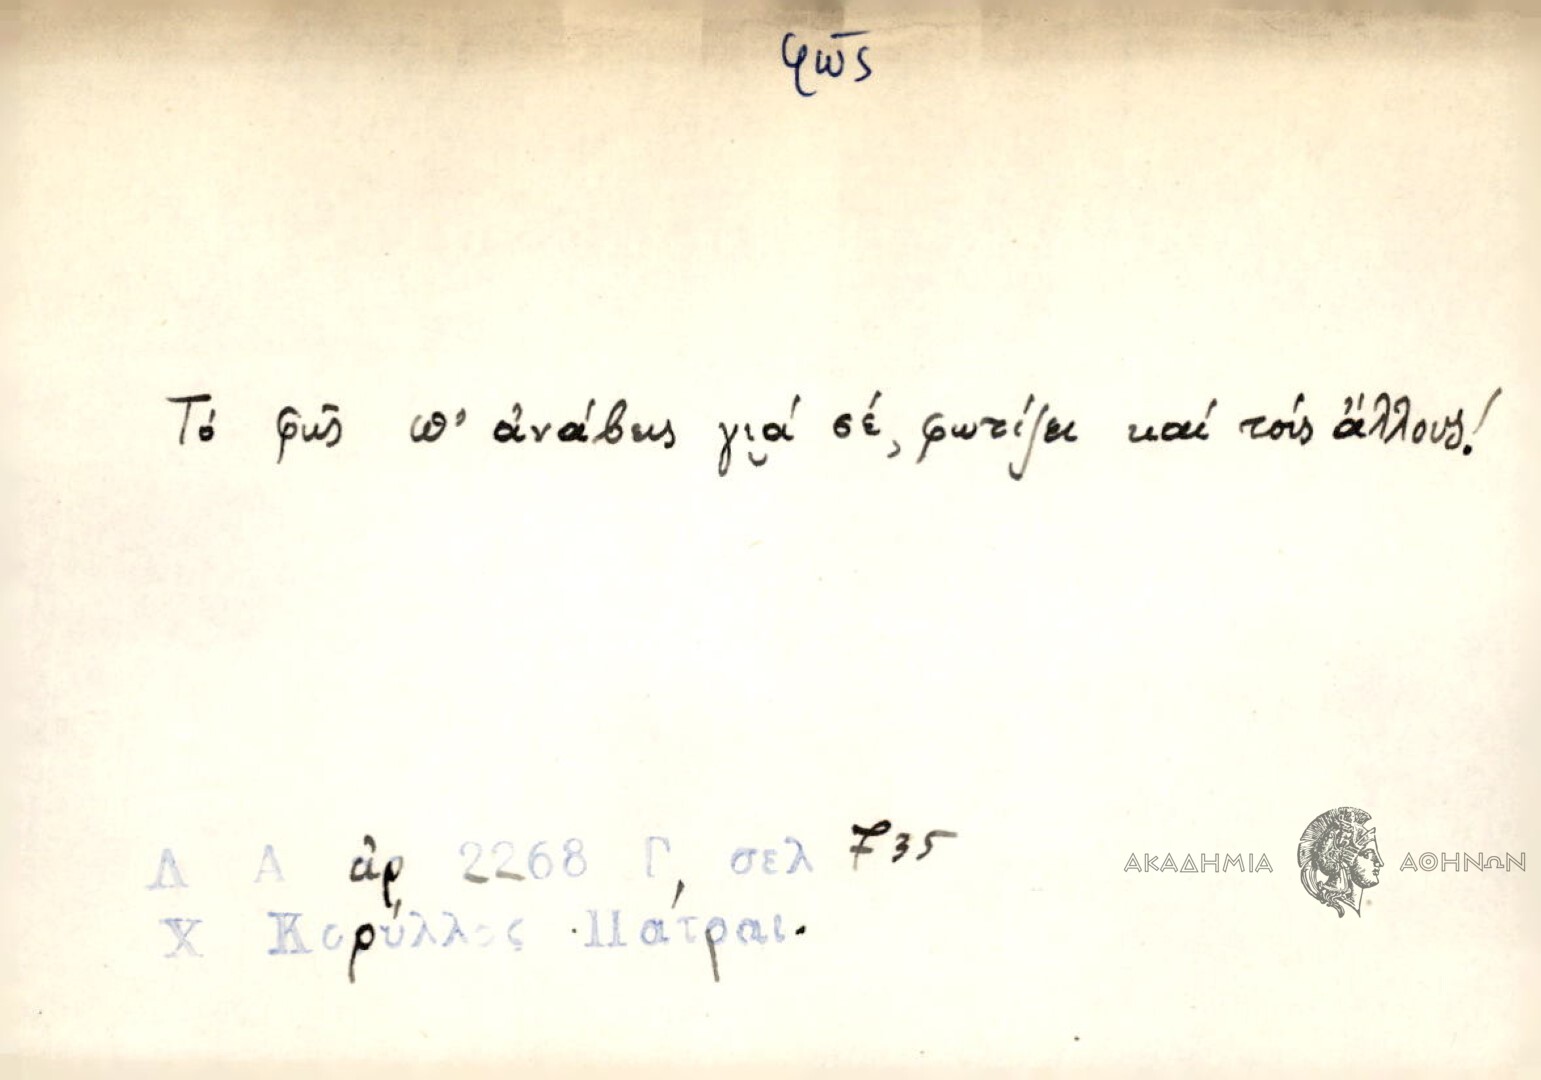 φῶς
Τό φῶς π' ἀνάβεις γιά σέ, φωτίζει καί τοίς ἄλλους!
Λ Α ἀρ 2268 Γ, σελ 735
Χ Κορύλλος · Πάτραι.
ΑΚΑΔΗΜΙΑ ΑΘΗΝΩΝ